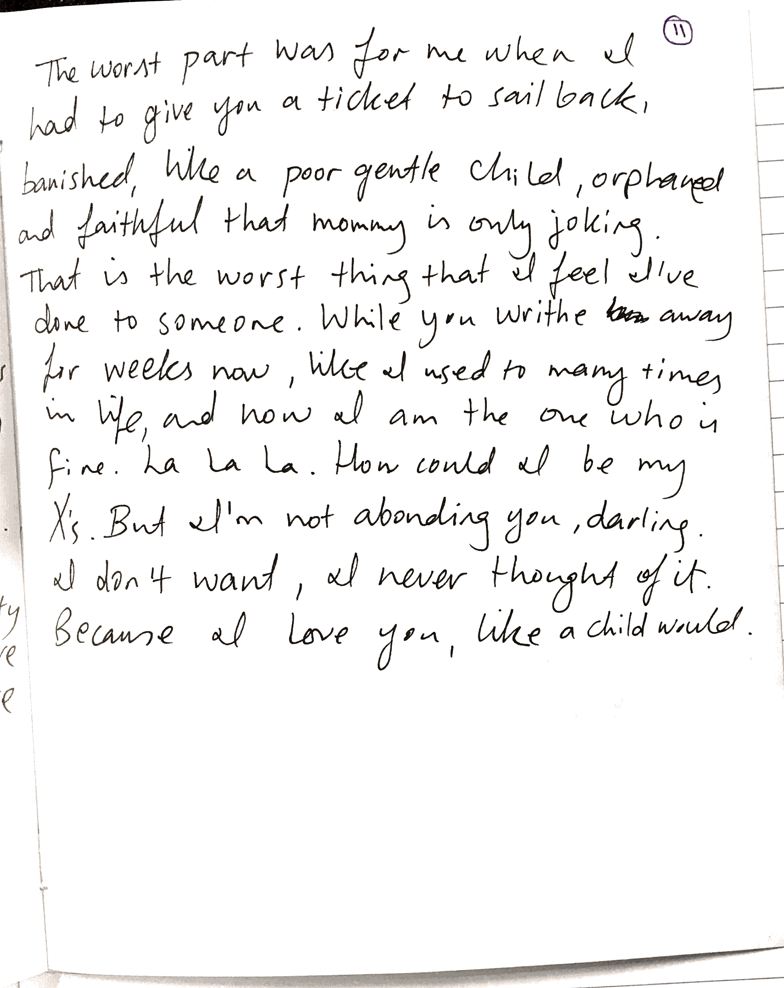 11
The worst part was for me when I
had to give you a ticket to sail back,
banished, like a poor gentle child, orphaned
and faithful that mommy is only joking.
That is the worst thing that I feel I've
done to someone. While you writhe away
for weeks now, like I used to many times
in life, and now I am the one who is
fine. La La La. How could I be my
X's. But I'm not abonding you, darling.
I don't want, I never thought of it.
Because I love you, like a child would.
ty
re
e